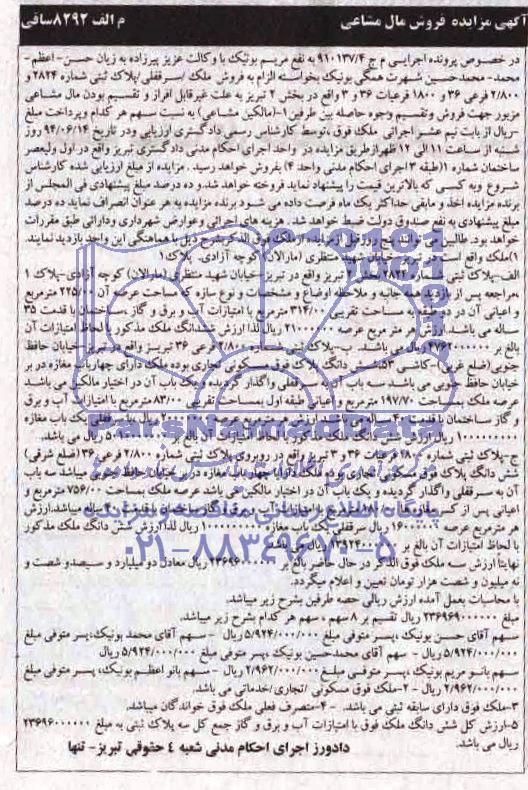 آگهی مزایده فروش مال مشاعی
م الف ۸۲۹۲سافی
در خصوص پرونده اجرایی م ج ۹۱۰۱۳۷/۴ به نفع مریم بوئیک با وکالت عزیز پیرزاده به زیان حسن- اعظم-
محمد- محمدحسین شهرت همگی بوئیک بخواسته الزام به فروش ملک /سرقفلی/پلاک ثبتی شماره ۲۸۲۴ و
۲/۸۰۰ فرعی ۳۶ و ۱۸۰۰ فرعیات ۳۶ و ۳ واقع در بخش ۲ تبریز به علت غیرقابل افراز و تقسیم بودن مال مشاعی
مزبور جهت فروش وتقسیم وجوه حاصله بین طرفین۱-(مالکین مشاعی) به نسبت سهم هر کدام وپرداخت مبلغ
-ریال از بابت نیم عشر اجرائی ملک فوق ،توسط کارشناس رسمی دادگستری ارزیابی ودر تاریخ ۹۴/۰۶/۱۴ روز
شنبه از ساعت ۱۱ الی ۱۲ ظهرازطریق مزایده در واحد اجرای احکام مدنی دادگستری تبریز واقع در اول ولیعصر
ساختمان شماره ۱(طبقه ۳اجرای احکام مدنی واحد ۴) بفروش خواهد رسید . مزایده از مبلغ ارزیابی شده کارشناس
شروع وبه کسی که بالاترین قیمت را پیشنهاد نماید فروخته خواهد شد.و ده درصد مبلغ پیشنهادی فی المجلس از
برنده مزایده اخذ و مابقی حداکثر یک ماه فرصت داده می شود برنده مزایده به هر عنوان انصراف نماید ده درصد
مبلغ پیشنهادی به نفع صندوق دولت ضبط خواهد شد. هزینه های اجرائی وعوارض شهرداری ودارائی طبق مقررات
خواهد بود. طالبین می توانند پنج روز قبل از مزایده از ملک فوق الذکر بشرح ذیل با هماهنگی این واحد بازدید نمایند.
۱)ملک واقع است در تبریز خیابان شهید منتظری (مارالان) کوچه آزادی- پلاک۱
الف-پلاک ثبتی شماره ۲۸۲۴ بخش ۲ تبریز واقع در تبریز-خیابان شهید منتظری (مارالان) کوچه آزادی-پلاک ۱
،مراجعه پس از بازدید همه جانبه و ملاحظه اوضاع و مشخصات و نوع سازه که مساحت عرصه آن ۲۲۵/۰۰ مترمربع
و اعیانی آن در دو طبقه به مساحت تقریبی ۳۱۴/۰۰ مترمربع با امتیازات آب و برق و گاز ،ساختمان با قدمت ۳۵
ساله می باشد.ارزش هر متر مربع عرصه ۲۱۰۰۰۰۰۰ ریال لذا ارزش ششدانگ ملک مذکور با لحاظ امتیازات آن
بالغ بر ۴۷۶۲۰۰۰۰۰۰ ریال می باشد. ب-پلاک ثبتی شماره ۲/۸۰۰ فرعی ۳۶ تبریز واقع در تبریز-خیابان حافظ
جنوبی(ضلع غربی)-کاشی ۵۳ شش دانگ پلاک فوق مسکونی تجاری بوده ملک دارای چهارباب مغازه در بر
خیابان حافظ جنوبی می باشد. سه باب آن به سرقفلی واگذار گردیده و یک باب آن در اختیار مالکین می باشد
عرصه ملک بمساحت ۱۹۷/۷۰ مترمربع و اعیانی طبقه اول بمساحت تقریبی ۸۳/۰۰مترمربع با امتیازات آب و برق
و گاز ساختمان با قدمت ۴۰ ساله می باشد ارزش هر مترمربع عرصه ریال بهای سرقفلی یک باب مغازه
۱۰۰۰۰۰۰۰۰۰ ریال لذا ارزش شش دانگ ملک مذکور با لحاظ امتیازات آن بالغ بر ریال می باشد.
ج-پلاک ثبتی شماره فرعیات ۳۶ و ۳ تبریز واقع در روبروی پلاک ثبتی شماره ۲/۸۰۰ فرعی ۳۶ (ضلع شرقی)
شش دانگ پلاک فوق مسکونی تجاری بوده ملک دارای چهار باب مغازه در بر خیابان حافظ جنوبی میباشد سه باب
آن به سرقفلی واگذار گردیده و یک باب آن در اختیار مالکین می باشد عرصه ملک بمساحت ۷۵۶/۰۰ مترمربع و
اعیانی پس از کسر مغازه ها مترمربع با امتیازات آب و برق و گاز ساختمان با قدمت ساله میباشد.ارزش
هر مترمربع عرصه ۱۶۰۰۰۰۰۰ ریال سرقفلی یک باب مغازه ۱۰۰۰۰۰۰۰۰۰ ریال لذا ارزش شش دانگ ملک مذکور
با لحاظ امتیازات آن بالغ بر ریال می باشد.
نهایتا ارزش سه ملک فوق الذکر در حال حاضر بالغ بر ۲۳۶۹۶۰۰۰۰۰۰ ریال معادل دو میلیارد و سیصدو شصت و
نه میلیون و شصت هزار تومان تعیین و اعلام میگردد.
با محاسبات بعمل آمده ارزش ریالی حصه طرفین بشرح زیر میباشد.
مبلغ ۲۳۶۹۶۹۰۰۰۰۰۰ ریال تقسیم بر ۸ سهم ، سهم هر کدام بشرح زیر میباشد.
سهم آقای حسن بوئیک ،پسر متوفی مبلغ ۵/۹۲۴/۰۰۰/۰۰۰ ریال - سهم آقای محمد بوئیک،پسر متوفی مبلغ
۵/۹۲۴/۰۰۰/۰۰۰ ریال - سهم آقای محمدحسین بوئیک ،پسر متوفی مبلغ ۵/۹۲۴/۰۰۰/۰۰۰ ریال
سهم بانو مریم بوئیک ،پسر متوفی مبلغ ۲/۹۶۲/۰۰۰/۰۰۰ ریال - سهم بانو اعظم بوئیک، پسر متوفی مبلغ
۲/۹۶۲/۰۰۰/۰۰۰ ریال - ۲-ملک فوق مسکونی /تجاری/خدماتی می باشد.
۳-ملک فوق دارای سابقه ثبتی می باشد. - ۴-متصرف فعلی ملک فوق خواندگان میباشد.
۵-ارزش کل شش دانگ ملک فوق با امتیازات آب و برق و گاز جمع کل سه پلاک ثبتی به مبلغ ۲۳۶۹۶۰۰۰۰۰۰
ریال می باشد.
دادورز اجرای احکام مدنی شعبه ۴ حقوقی تبریز- تنها
ParsNamadData
۰۲۱-۸۸۳۴۹۶۷۰-۵